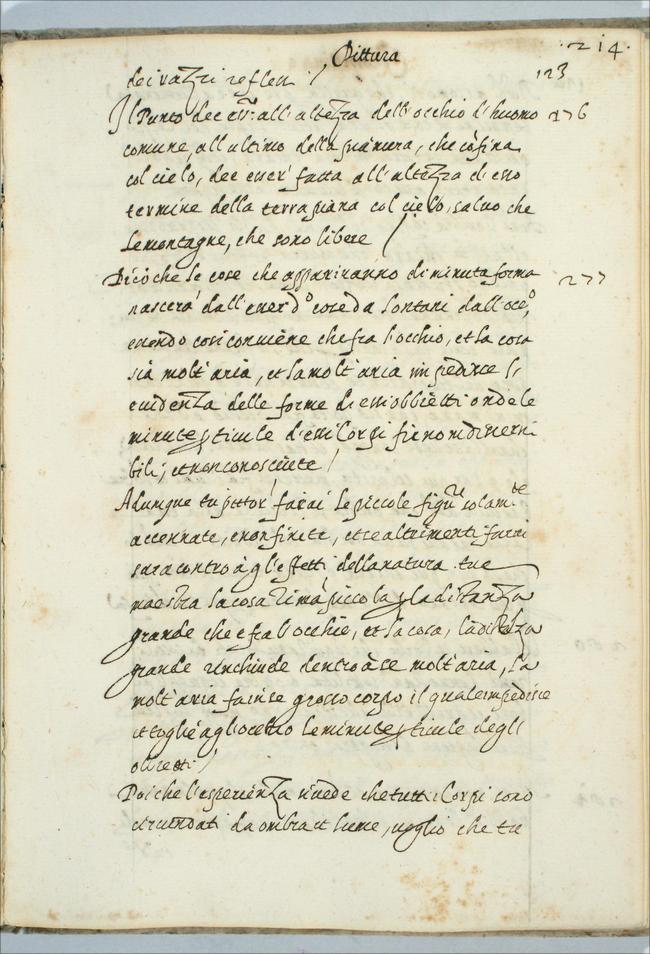 Pittura
.214.
123
dei razzi reflessi /
Il Punto dee eṝ all'altezza dell'occhio d'huomo 276
comune, all'ultimo della pianura, che cōfina
col cielo, dee esser' fatta all'altezza di esso
termine della terra piana col cielo, salvo che
le montagne, che sono libere /
Dico che le cose che appariranno di minuta forma 277
nascera' dall'esser d.º cose da lontani dall'occ.º,
essendo cosi conviene che fra l'occhio, et la cosa
sia molt'aria, et la molt'aria impedisce l'
evidenza delle forme di essi obbietti onde le
minute pticule d'essi Corpi fieno indiscerni
bili, et non conosciute /
Adunque tu pittor' farai le piccole figure solam.te
accennate, e non finite, et se altrimenti farai
sara contro à gl'effetti della natura tue
maestra la cosa rimā piccola p la distanza
grande che e fra l'occhio, et la cosa, la distāza
grande rinchiude dentro à se molt'aria, la
molt'aria fa in se grosso corpo il quale impedisce
et toglie agl'occhio le minute pticule degli
obietti /
Poiche l'esperienza si vede che tutti i Corpi sono
circundati da ombra et lume, voglio che tu